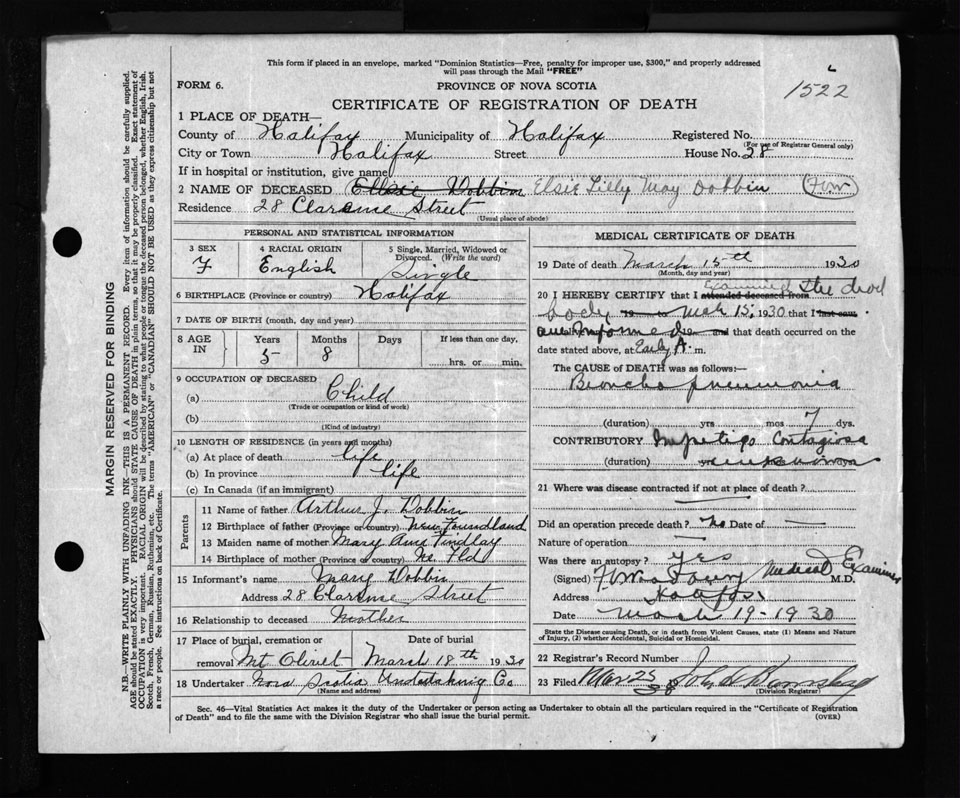 This form if placed in an envelope, marked "Dominion Statistics—Free, penalty for improper use, $300," and properly addressed
will pass through the Mail "FREE"
FORM 6.
PROVINCE OF NOVA SCOTIA
1522
CERTIFICATE OF REGISTRATION OF DEATH
1 PLACE OF DEATH—
County of Halifax Municipality of Halifax Registered No.
(For use of Registrar General only)
City or Town Halifax Street House No. 28
If in hospital or institution, give name
2 NAME OF DECEASED Ellsie Dobbin Elsie Lilly May Dobbin
Residence 28 Clarence Street
(Usual place of abode)
PERSONAL AND STATISTICAL INFORMATION
3 SEX 4 RACIAL ORIGIN 5 Single, Married, Widowed or Divorced. (Write the word)
F English Single
6 BIRTHPLACE (Province or country) Halifax
7 DATE OF BIRTH (month, day and year)
8 AGE IN Years Months Days If less than one day,
5 8 hrs. or min.
9 OCCUPATION OF DECEASED
(a) Child
(Trade or occupation or kind of work)
(b)
(Kind of industry)
10 LENGTH OF RESIDENCE (in years and months)
(a) At place of death life
(b) In province life
(c) In Canada (if an immigrant)
Parents
11 Name of father Arthur J. Dobbin
12 Birthplace of father (Province or country) New Foundland
13 Maiden name of mother Mary Ann Findlay
14 Birthplace of mother (Province or country) Fld
15 Informant's name Mary Dobbin
Address 28 Clarence Street
16 Relationship to deceased Mother
17 Place of burial, cremation or Date of burial
removal Mt Olivet March 18th 1930
18 Undertaker Nova Scotia Undertaking Co
(Name and address)
MEDICAL CERTIFICATE OF DEATH
19 Date of death March 15th 1930
(Month, day and year)
20 I HEREBY CERTIFY that I attended deceased from Examined the dead
body to Mch 15, 1930 that I last saw
am informed and that death occurred on the
date stated above, at Early A. m.
The CAUSE of DEATH was as follows:—
Broncho pneumonia
(duration) yrs mos 7 dys.
CONTRIBUTORY Impetigo Contagiosa
(duration) unknown
21 Where was disease contracted if not at place of death?
Did an operation precede death? No Date of —
Nature of operation —
Was there an autopsy? yes
(Signed) Medical Examiner M.D.
Address Halifax
Date March 19-1930
State the Disease causing Death, or in death from Violent Causes, state (1) Means and Nature
of Injury, (2) whether Accidental, Suicidal or Homicidal.
22 Registrar's Record Number
23 Filed Mar 25
(Division Registrar)
Sec. 46—Vital Statistics Act makes it the duty of the Undertaker or person acting as Undertaker to obtain all the particulars required in the "Certificate of Registration
of Death" and to file the same with the Division Registrar who shall issue the burial permit.
(OVER)
MARGIN RESERVED FOR BINDING
N.B.—WRITE PLAINLY WITH UNFADING INK—THIS IS A PERMANENT RECORD. Every item of information should be carefully supplied.
AGE should be stated EXACTLY. PHYSICIANS should STATE CAUSE OF DEATH in plain terms, so that it may be properly classified. Exact statement of
OCCUPATION is very important. RACIAL ORIGIN will be described by stating to what people or tongue the deceased person belonged, whether English, Irish,
Scotch, French, German, Russian, Ruthenian, etc. The terms "AMERICAN" or "CANADIAN" SHOULD NOT BE USED as they express citizenship but not
a race or people. See instructions on back of Certificate.